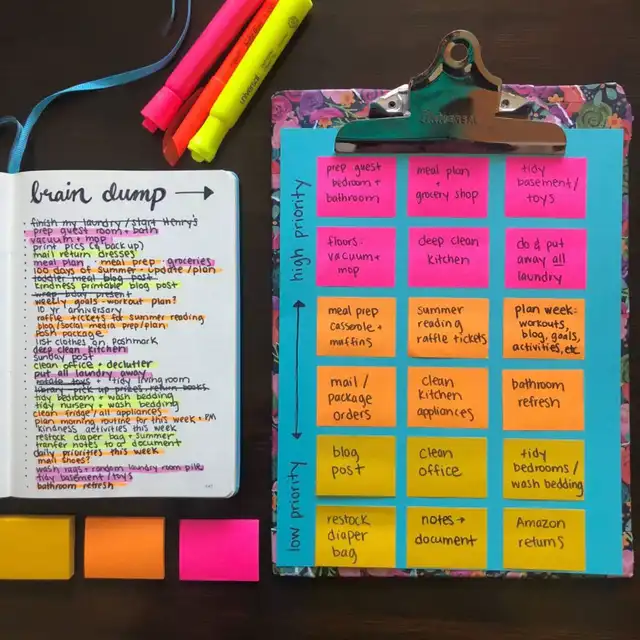 brain dump →
finish my laundry / start Henry's
prep guest room + bath
vacuum + mop
print pics (& back up)
mail return dresses
meal plan · meal prep · groceries
100 days of summer - update / plan
toddler meal blog post
kindness printable blog post
wrap bday present
weekly goals - workout plan?
10 yr anniversary
raffle tickets for summer reading
blog/social media prep/plan
posh package
list clothes on poshmark
deep clean kitchen
sunday post
clean office + declutter
put all laundry away
rotate toys + tidy living room
library pick up prizes, return books
tidy bedroom + wash bedding
tidy nursery + wash bedding
clean fridge/all appliances
plan morning routine for this week + PM
kindness activities this week
restock diaper bag + summer
tranfer notes to a document
daily priorities this week
mail shoes?
wash rags + random laundry room pile
tidy basement/toys
bathroom refresh
universal
UNIVERSAL
high priority
low priority
prep guest
bedroom +
bathroom
meal plan
+
grocery shop
tidy
basement/
toys
floors:
vacuum +
mop
deep clean
kitchen
do & put
away all
laundry
meal prep
casserole +
muffins
summer
reading
raffle tickets
plan week:
workouts,
blog, goals,
activities, etc.
mail /
package
orders
clean
kitchen
appliances
bathroom
refresh
blog
post
clean
office
tidy
bedrooms /
wash bedding
restock
diaper
bag
notes →
document
Amazon
returns